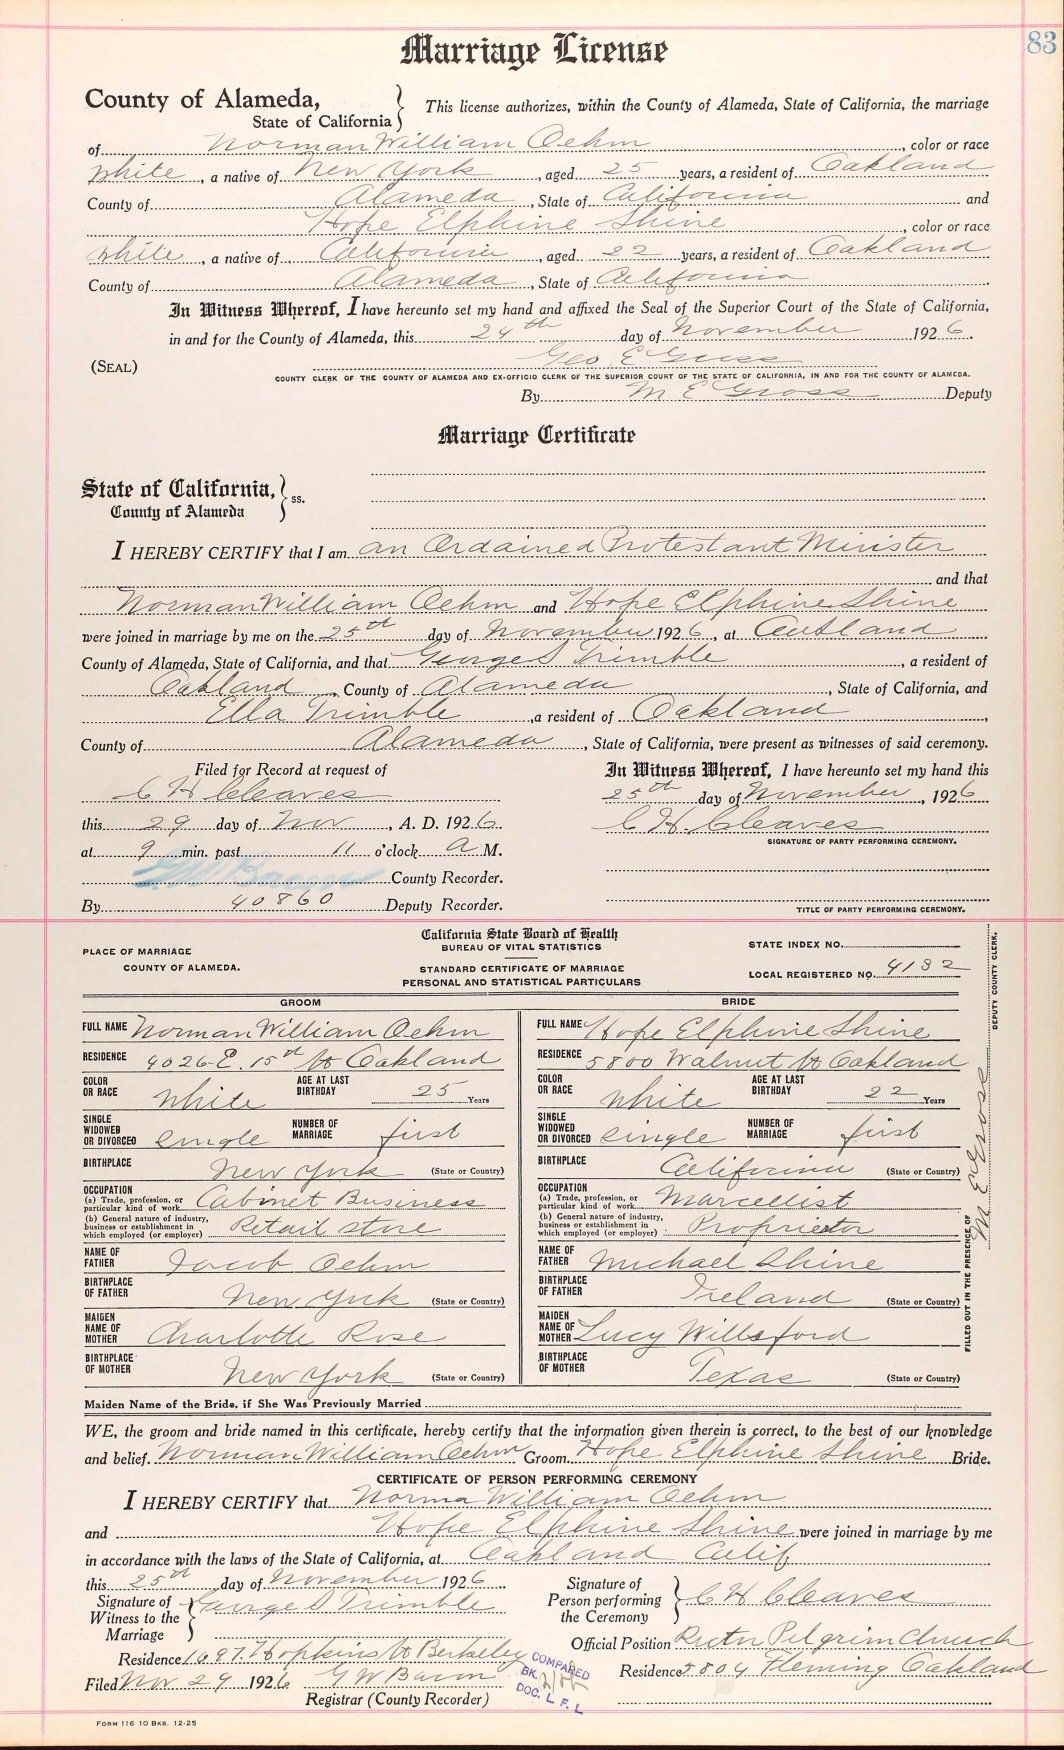 83
Marriage License
County of Alameda,
State of California
This license authorizes, within the County of Alameda, State of California, the marriage
of Norman William Oehm, color or race
White, a native of New York, aged 25 years, a resident of Oakland
County of Alameda, State of California and
Hope Elphine Shine, color or race
White, a native of California, aged 22 years, a resident of Oakland
County of Alameda, State of California.
In Witness Whereof, I have hereunto set my hand and affixed the Seal of the Superior Court of the State of California,
in and for the County of Alameda, this 24th day of November 1926.
(SEAL)
Geo E Gross
COUNTY CLERK OF THE COUNTY OF ALAMEDA AND EX-OFFICIO CLERK OF THE SUPERIOR COURT OF THE STATE OF CALIFORNIA, IN AND FOR THE COUNTY OF ALAMEDA.
By M E Gross Deputy
Marriage Certificate
State of California,
County of Alameda
ss.
I HEREBY CERTIFY that I am an Ordained Protestant Minister
and that
Norman William Oehm and Hope Elphine Shine
were joined in marriage by me on the 25th day of November 1926, at Oakland
County of Alameda, State of California, and that George S Trimble, a resident of
Oakland, County of Alameda, State of California, and
Ella Trimble, a resident of Oakland,
County of Alameda, State of California, were present as witnesses of said ceremony.
Filed for Record at request of
C H Cleaves
this 29 day of Nov, A. D. 1926.
at 9 min. past 11 o'clock A M.
G W Bacon County Recorder.
By 40860 Deputy Recorder.
In Witness Whereof, I have hereunto set my hand this
25th day of November, 1926
C H Cleaves
SIGNATURE OF PARTY PERFORMING CEREMONY.
TITLE OF PARTY PERFORMING CEREMONY.
PLACE OF MARRIAGE
COUNTY OF ALAMEDA.
California State Board of Health
BUREAU OF VITAL STATISTICS
STANDARD CERTIFICATE OF MARRIAGE
PERSONAL AND STATISTICAL PARTICULARS
STATE INDEX NO.
LOCAL REGISTERED NO. 4132
GROOM
FULL NAME Norman William Oehm
RESIDENCE 4026 E. 15th St Oakland
COLOR OR RACE White AGE AT LAST BIRTHDAY 25 Years
SINGLE WIDOWED OR DIVORCED Single NUMBER OF MARRIAGE first
BIRTHPLACE New York (State or Country)
OCCUPATION
(a) Trade, profession, or particular kind of work Cabinet Business
(b) General nature of industry, business or establishment in which employed (or employer) Retail store
NAME OF FATHER Jacob Oehm
BIRTHPLACE OF FATHER New York (State or Country)
MAIDEN NAME OF MOTHER Charlotte Rose
BIRTHPLACE OF MOTHER New York (State or Country)
BRIDE
FULL NAME Hope Elphine Shine
RESIDENCE 5800 Walnut St Oakland
COLOR OR RACE White AGE AT LAST BIRTHDAY 22 Years
SINGLE WIDOWED OR DIVORCED Single NUMBER OF MARRIAGE first
BIRTHPLACE California (State or Country)
OCCUPATION
(a) Trade, profession, or particular kind of work Marcellist
(b) General nature of industry, business or establishment in which employed (or employer) Proprietor
NAME OF FATHER Michael Shine
BIRTHPLACE OF FATHER Ireland (State or Country)
MAIDEN NAME OF MOTHER Lucy Willsford
BIRTHPLACE OF MOTHER Texas (State or Country)
FILLED OUT IN THE PRESENCE OF M. E Gross DEPUTY COUNTY CLERK.
Maiden Name of the Bride, if She Was Previously Married
WE, the groom and bride named in this certificate, hereby certify that the information given therein is correct, to the best of our knowledge
and belief. Norman William Oehm Groom. Hope Elphine Shine Bride.
CERTIFICATE OF PERSON PERFORMING CEREMONY
I HEREBY CERTIFY that Norma William Oehm
and Hope Elphine Shine were joined in marriage by me
in accordance with the laws of the State of California, at Oakland Calif
this 25th day of November 1926
Signature of Witness to the Marriage George S Trimble
Residence 1697. Hopkins St Berkeley
Filed Nov 29 1926 G W Bacon
Registrar (County Recorder)
Signature of Person performing the Ceremony C H Cleaves
Official Position Pilgrim Church
Residence 5809 Fleming Oakland
COMPARED
BK.
DOC. L. F. L
FORM 116 10 BKS. 12-25